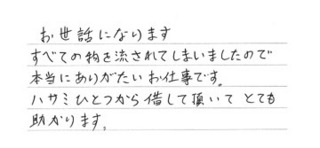 お世話になります
すべての物を流されてしまいましたので
本当にありがたいお仕事です。
ハサミひとつから借して頂いてとても
助かります。